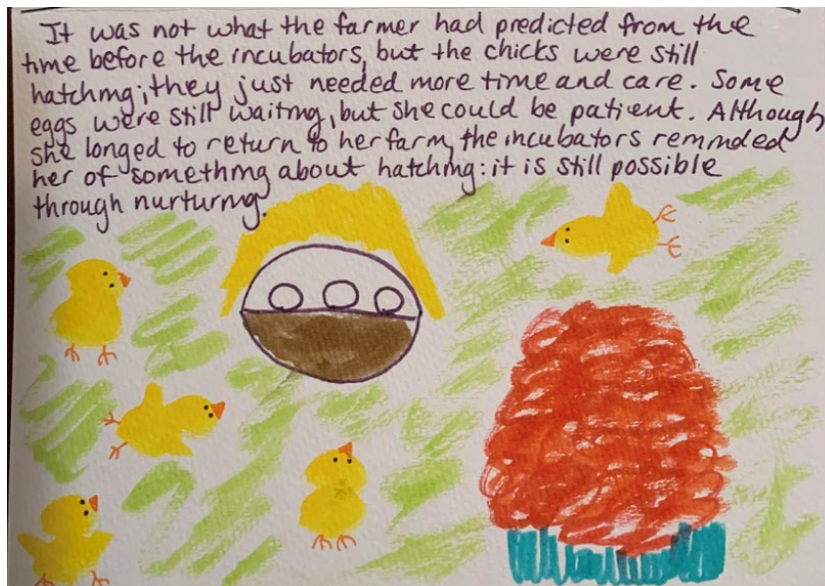 It was not what the farmer had predicted from the
time before the incubators, but the chicks were still
hatching; they just needed more time and care. Some
eggs were still waiting, but she could be patient. Although
she longed to return to her farm, the incubators reminded
her of something about hatching: it is still possible
through nurturing.